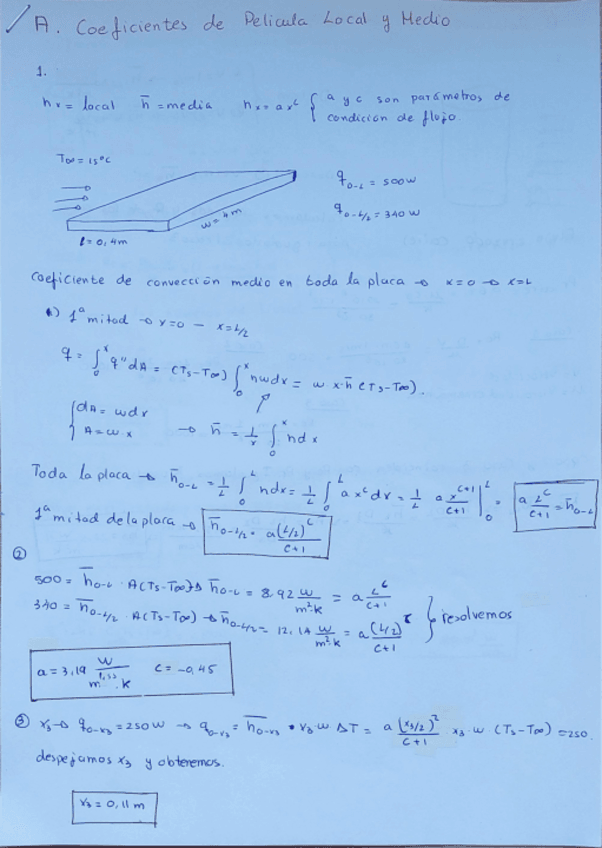 A. Coeficientes de Pelicula Local y Medio
1.
hx = local h̄ = media hx = a x^c { a y c son parámetros de condición de flujo.
T∞ = 15ºC
q0-L = 500W
q0-L/2 = 340 W
w = 4m
l = 0,4m
Coeficiente de convección medio en toda la placa → x=0 → x=L
1ª mitad → x=0 - x=L/2
q = ∫₀ˣ q'' dA = (Ts-T∞) ∫₀ˣ hwdx = w x·h̄ (Ts-T∞).
{ dA = wdx
A = w·x → h̄ = 1/x ∫₀ˣ hdx
Toda la placa → h̄0-L = 1/L ∫₀ᴸ hdx = 1/L ∫₀ᴸ a x^c dx = 1/L a x^(c+1)/(c+1) |₀ᴸ = a L^c/(c+1) = h̄0-L
1ª mitad de la placa → h̄0-L/2 = a(L/2)^c/(c+1)
②
500 = h̄0-L · A(Ts-T∞) → h̄0-L = 8,92 W/m²·K = a L^c/(c+1)
340 = h̄0-L/2 · A(Ts-T∞) → h̄0-L/2 = 12,14 W/m²·K = a(L/2)^c/(c+1) } resolvemos
a = 3,19 W/m^1,55·K c = -0,45
③ x3 → q0-x3 = 250W → q0-x3 = h̄0-x3 · x3·w ΔT = a (x3/2)²/(c+1) x3·w (Ts-T∞) = 250.
despejamos x3 y obtenemos.
x3 = 0,11 m